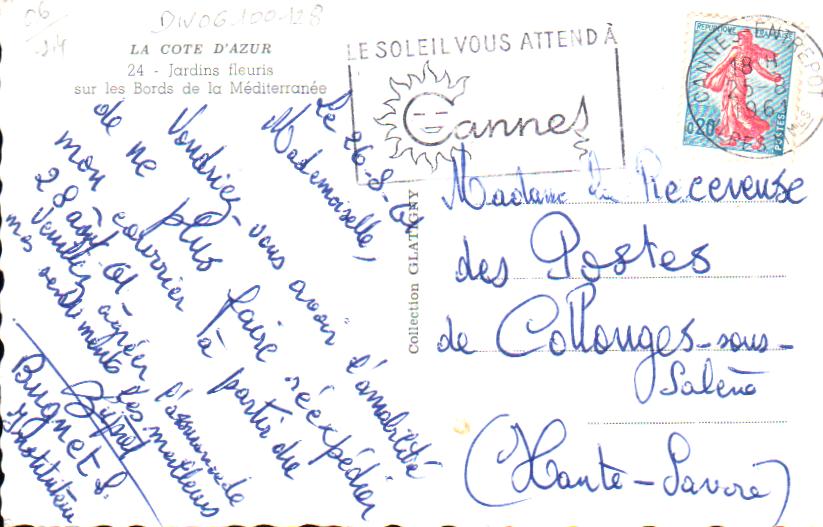 06
DIV06100-128
LA COTE D'AZUR
24 - Jardins fleuris
sur les Bords de la Méditerranée
LE SOLEIL VOUS ATTEND À
Cannes
REPUBLIQUE FRANÇAISE
0,20
POSTES
CANNES ENTREPOT
18 H
1961
Collection GLATIGNY
Le 26-8-61
Mademoiselle,
Voudriez-vous avoir l'amabilité
de ne plus faire réexpédier
mon courrier à partir du
28 août 61
Veuillez agréer l'assurance de
mes sentiments les meilleurs
Bugnet
Instituteur
Madame la Receveuse
des Postes
de Collonges-sous-
Salève
(Haute-Savoie)